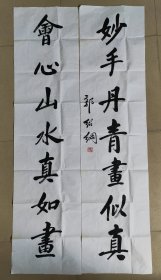 妙手丹青畫似真
會心山水真如畫
郭紹綱